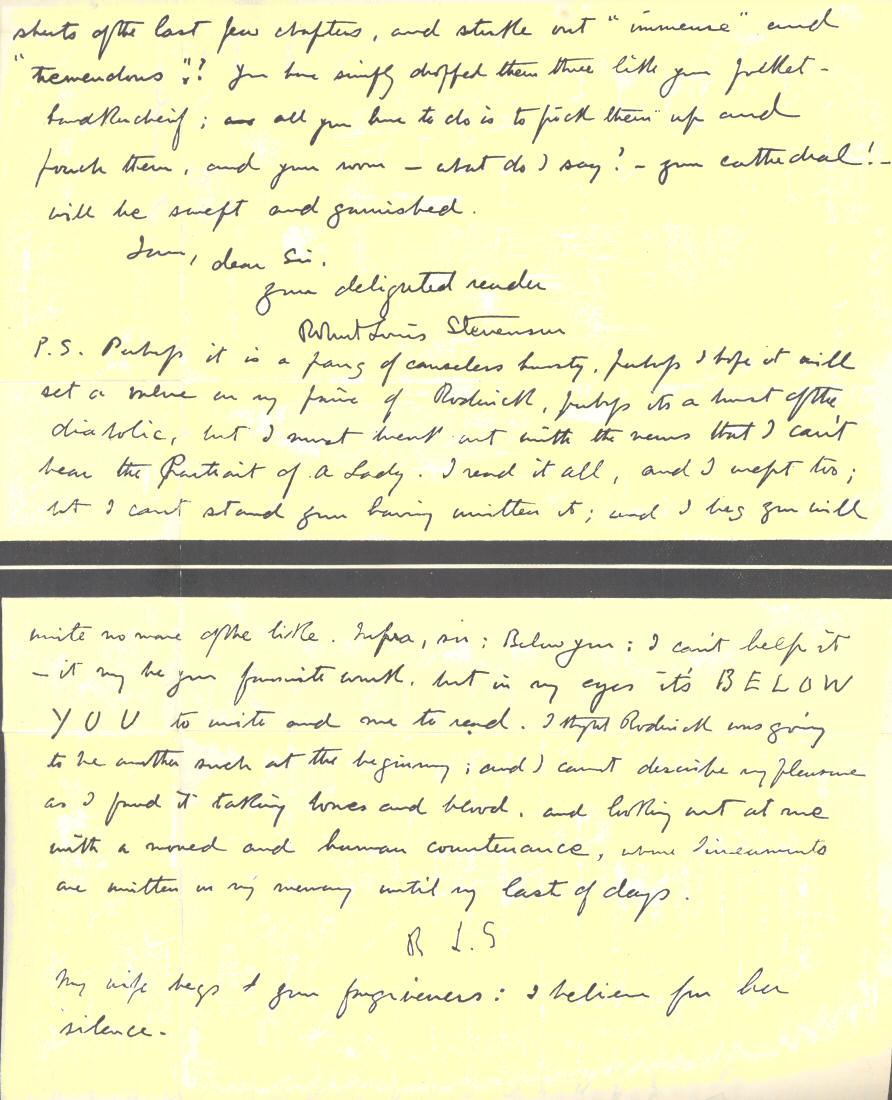 sheets of the last few chapters, and strike out "immense" and
"tremendous"? You have simply dropped them there like your pocket-
handkercheif; all you have to do is to pick them up and
pouch them, and your room – what do I say? – your cathedral! –
will be swept and garnished.
I am, dear Sir.
your delighted reader
Robert Louis Stevenson
P.S. Perhaps it is a pang of causeless honesty, perhaps I hope it will
set a value on my praise of Roderick, perhaps its a burst of the
diabolic, but I must break out with the news that I can't
bear the Portrait of a Lady. I read it all, and I wept too;
but I can't stand your having written it; and I beg you will
write no more of the like. Infra, sir; Below you: I can't help it
– it may be your favourite work, but in my eyes it's BELOW
YOU to write and me to read. I thought Roderick was going
to be another such at the beginning; and I cannot describe my pleasure
as I found it taking bones and blood, and looking out at me
with a moved and human countenance, whose lineaments
are written in my memory until my last of days.
R L.S
My wife begs your forgiveness: I believe for her
silence.